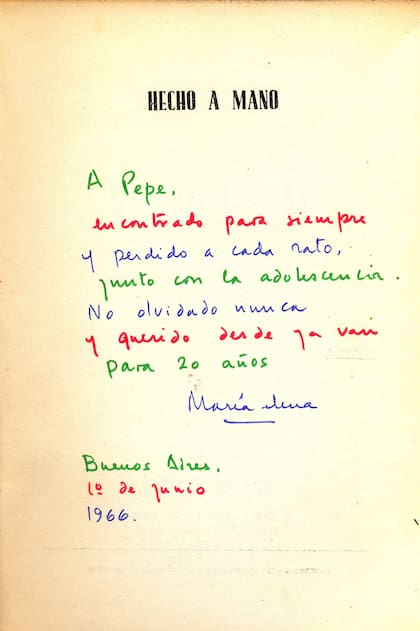 HECHO A MANO
A Pepe,
encontrado para siempre
y perdido a cada rato,
junto con la adolescencia.
No olvidado nunca
y querido desde ya van
para 20 años
María Elena
Buenos Aires,
1º de junio
1966.